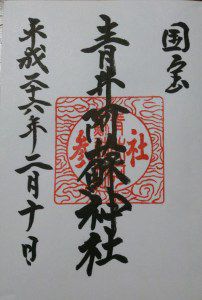 国宝
青井阿蘇神社
平成二十六年二月十日